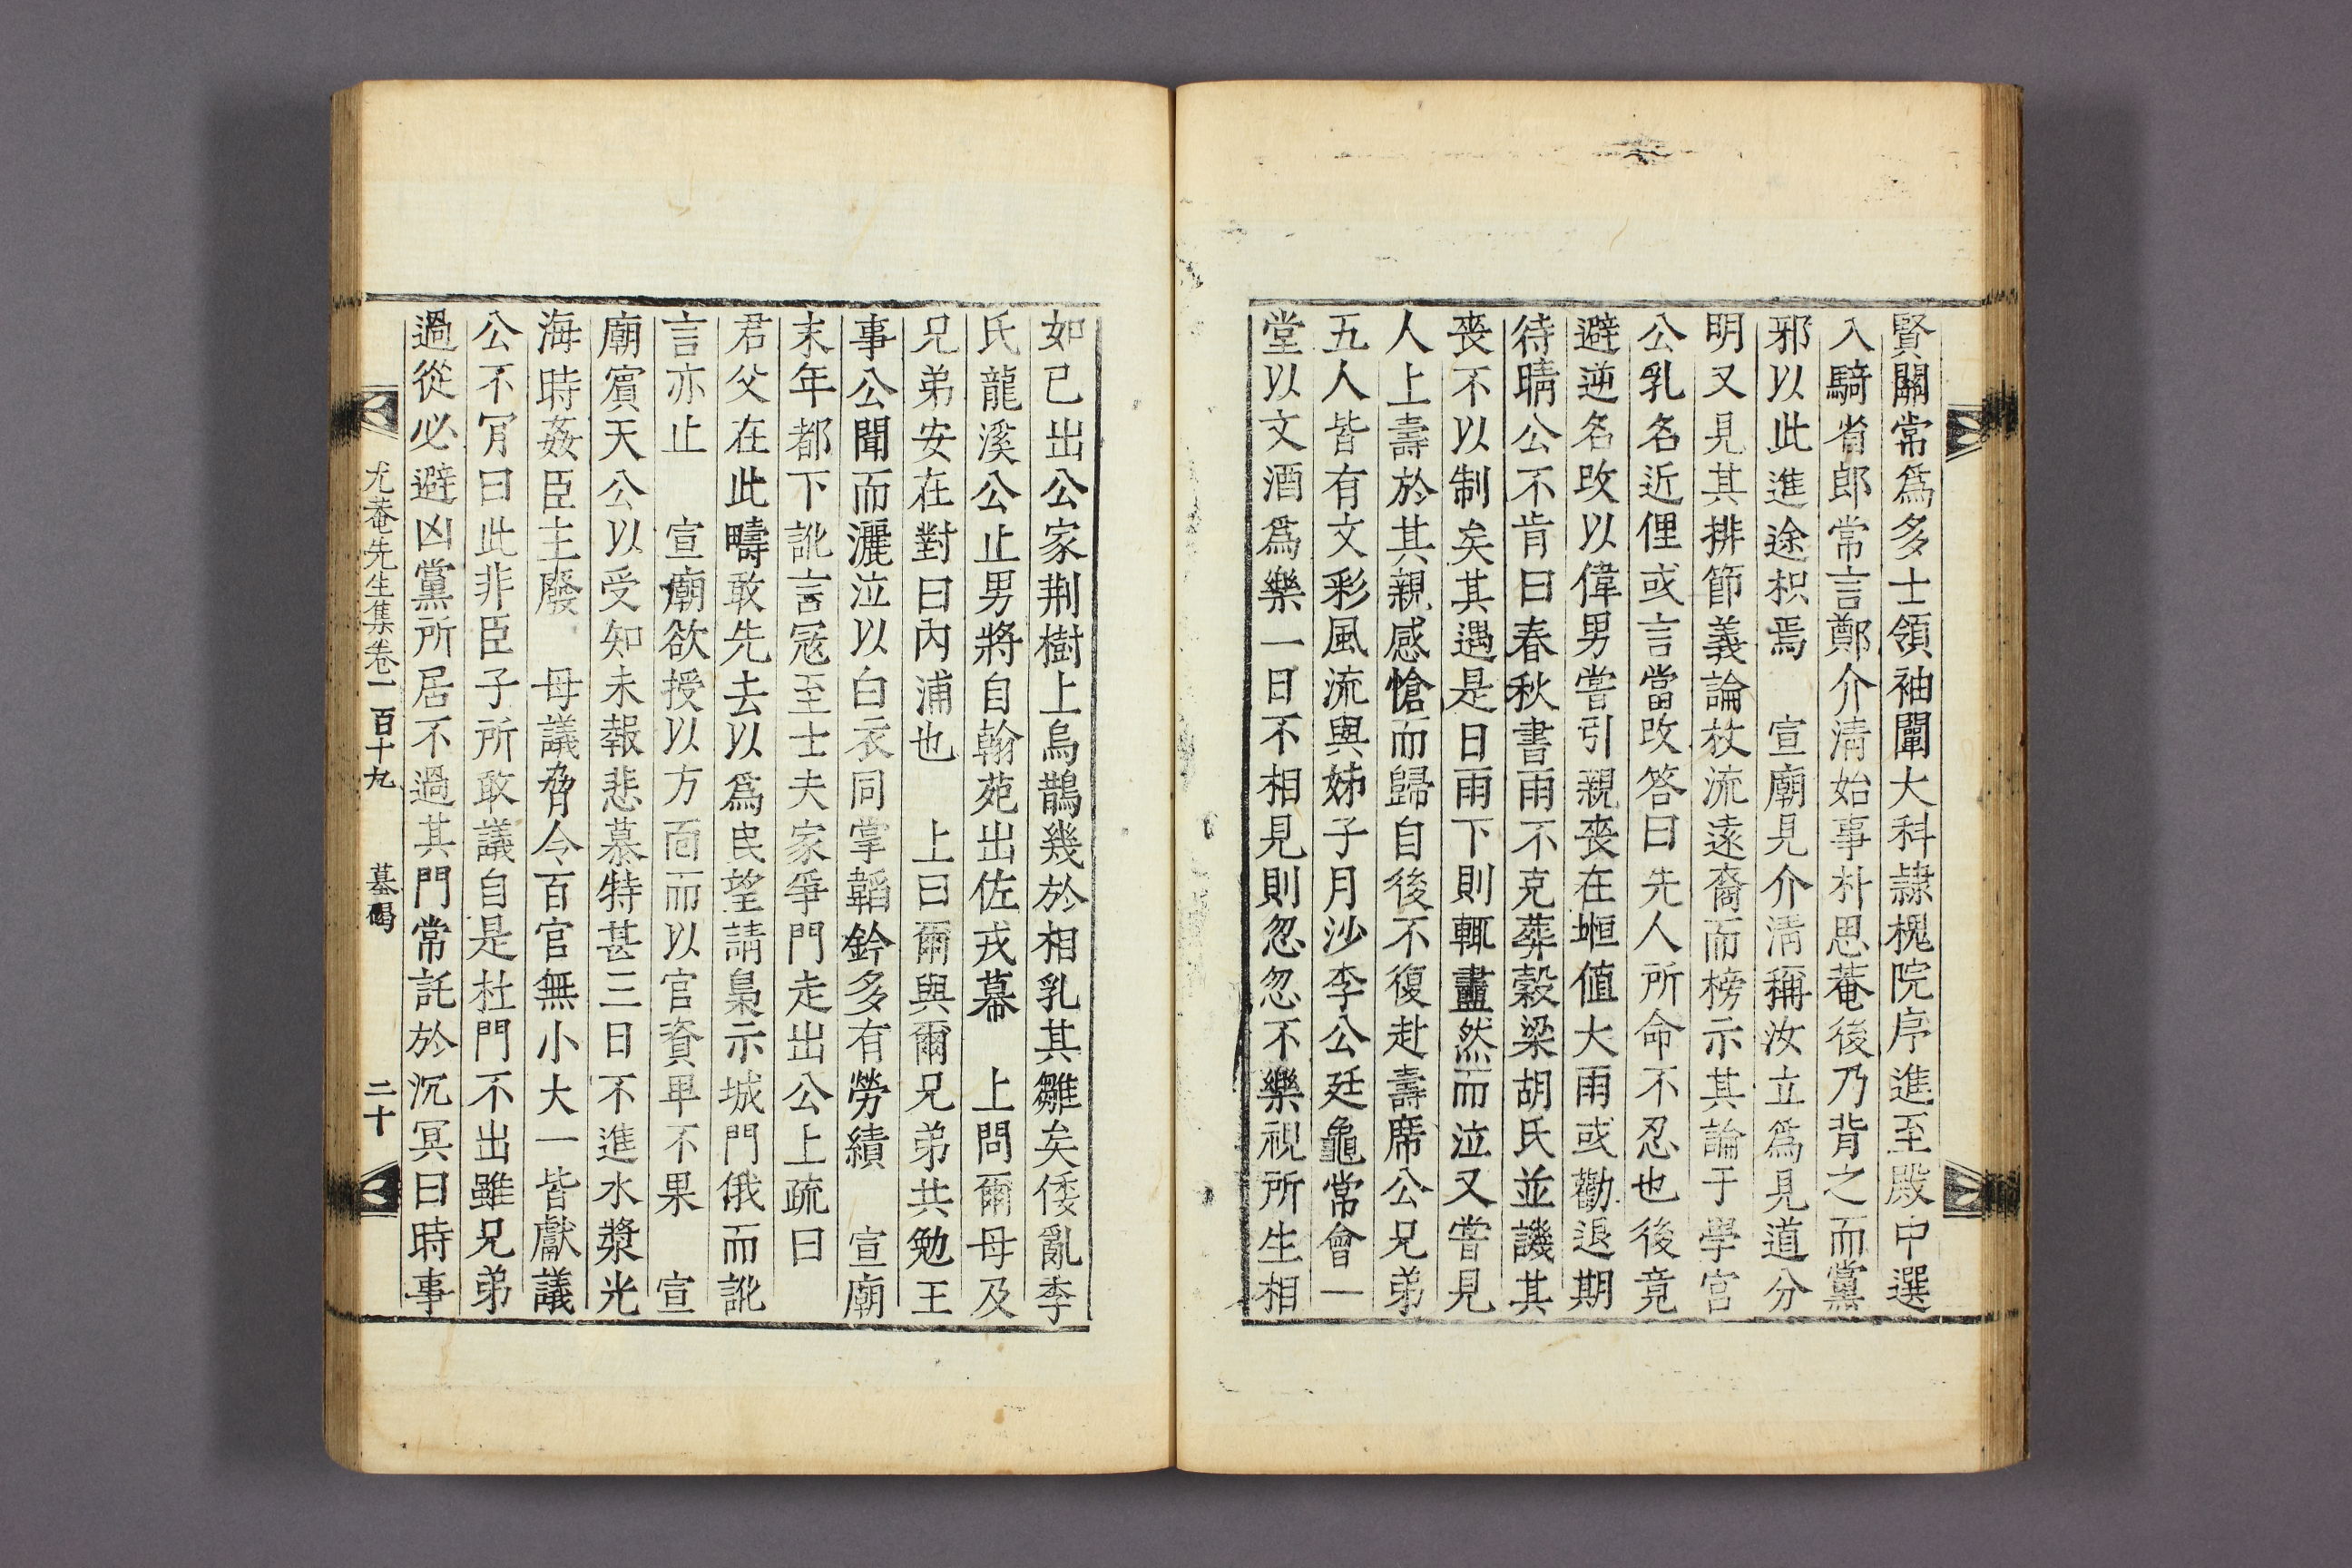 賢關常爲多士領袖闡大科隷槐院序進至殿中選
入騎省郎常言鄭介淸始事朴思菴後乃背之而黨
邪以此進途枳焉　宣廟見介淸稱汝立爲見道分
明又見其排節義論杖流遠裔而榜示其論于學宮
公乳名近俚或言當改答曰先人所命不忍也後竟
避逆名改以偉男嘗引親喪在堩値大雨或勸退期
待晴公不肯曰春秋書雨不克葬穀梁胡氏並譏其
喪不以制矣其遇是日雨下則輒衋然而泣又嘗見
人上壽於其親感愴而歸自後不復赴壽席公兄弟
五人皆有文彩風流與姊子月沙李公廷龜常會一
堂以文酒爲樂一日不相見則忽忽不樂視所生相
如已出公家荆樹上烏鵲幾於相乳其雛矣倭亂李
氏龍溪公止男將自翰苑出佐戎幕　上問爾母及
兄弟安在對曰內浦也　上曰爾與爾兄弟共勉王
事公聞而灑泣以白衣同掌韜鈐多有勞績　宣廟
末年都下訛言冦至士夫家爭門走出公上疏曰
君父在此疇敢先去以爲民望請梟示城門俄而訛
言亦止　宣廟欲授以方面而以官資卑不果　宣
廟賓天公以受知未報悲慕特甚三日不進水漿光
海時姦臣主廢　母議脅令百官無小大一皆獻議
公不肎曰此非臣子所敢議自是杜門不出雖兄弟
過從必避凶黨所居不過其門常託於沉冥曰時事
尤菴先生集卷一百十九　墓碣　二十